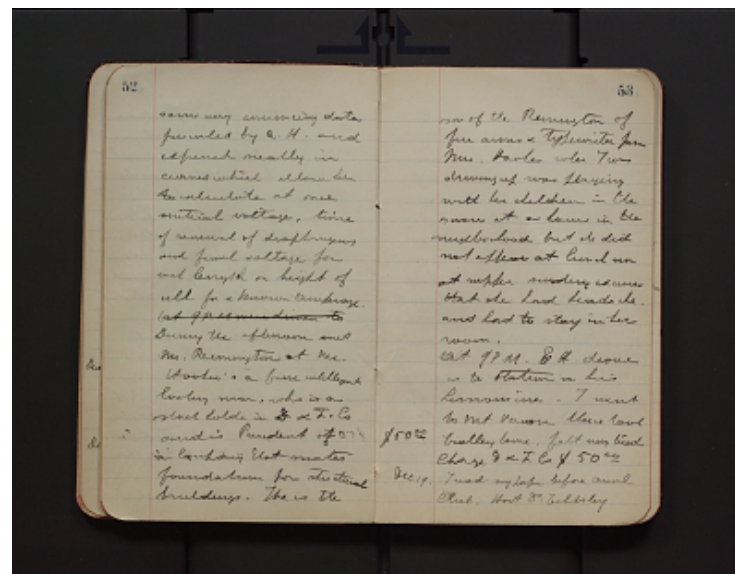 52
some very interesting data
furnished by A. H. and
expressed neatly in
curves which allows him
to calculate at once
initial voltage, time
of renewal of diaphragms
and final voltage for
any length or height of
cell for a known amperage.
(at 9 P.M. was driven to
During the afternoon met
Mr. Remington at Mr.
Hooker's a fine intelligent
looking man, who is a
stock holder in D & I. Co
and is President of
in London that makes
foundations for structural
buildings. He is the
53
son of the Remington of
fire arms & typewriter fame
Mrs. Hooker who I was
driving up was playing
with her children in the
snow at a house in the
neighborhood but she did
not appear at lunch nor
at supper excuse
that she had headache
and had to stay in her
room.
At 9 P.M. E H. drove
us to station in his
Limousine. I went
to Mt Vernon there took
trolley home. felt very tired
$50.00 Charge D & I. Co $ 50.00
Dec 19. I read my paper before
Club. Host Dr.